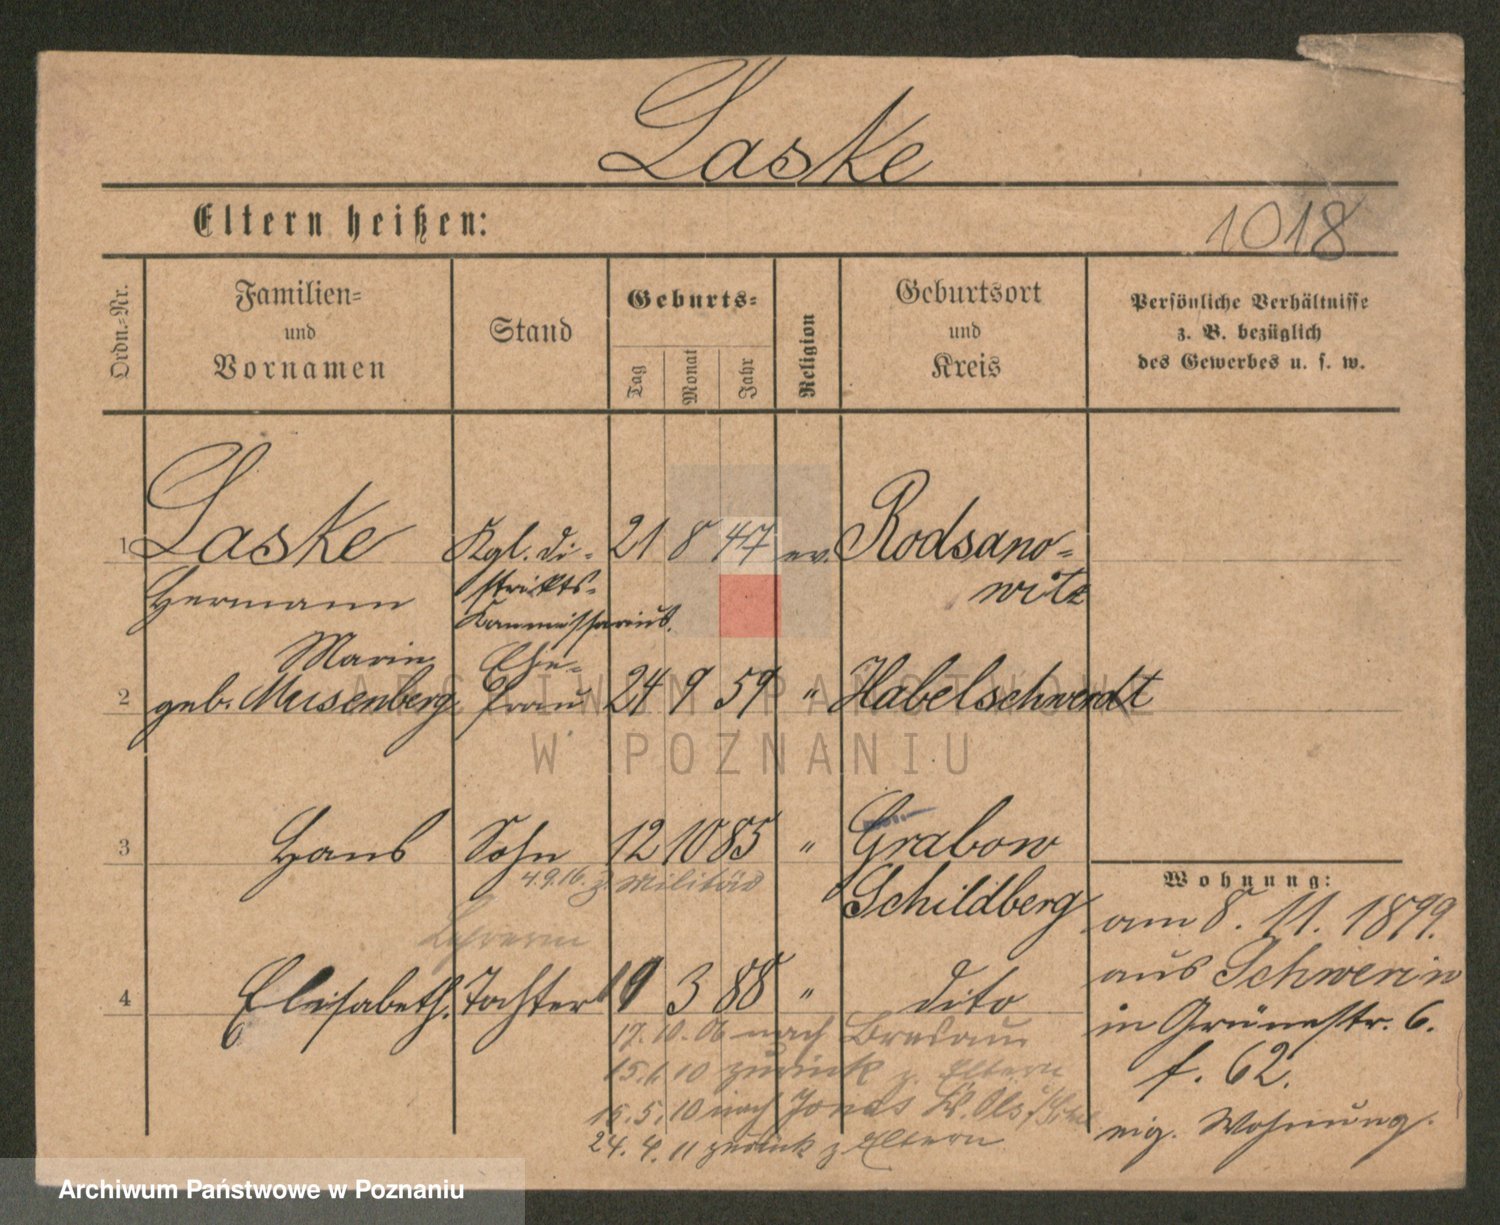 Laske
Eltern heißen:
1018
Ordn.-Nr.
Familien-
und
Vornamen
Stand
Geburts-
Tag
Monat
Jahr
Religion
Geburtsort
und
Kreis
Persönliche Verhältnisse
z. B. bezüglich
des Gewerbes u. s. w.
1 Laske Kgl. Di- 21 8 47 ev. Rodsano-
Hermann strikts- witz
Kommissarius.
Marie Ehe-
2 geb. Meisenberg frau 24 9 59 " Habelschwerdt
3 Hans Sohn 12 10 85 " Grabow
4.9.16. z. Militär
Schildberg
Wohnung:
am 8. 11. 1899.
Lehrerin
aus Schwerin
4 Elisabeth. Tochter 19 3 88 " dito
in Grünestr. 6.
17. 10. 06 nach Breslau
f. 62.
15. 1. 10 zurück z. Eltern
15. 5. 10 nach Kr. Öls
eig. Wohnung.
24. 4. 11 zurück z. Eltern
ARCHIWUM PAŃSTWOWE
W POZNANIU
Archiwum Państwowe w Poznaniu